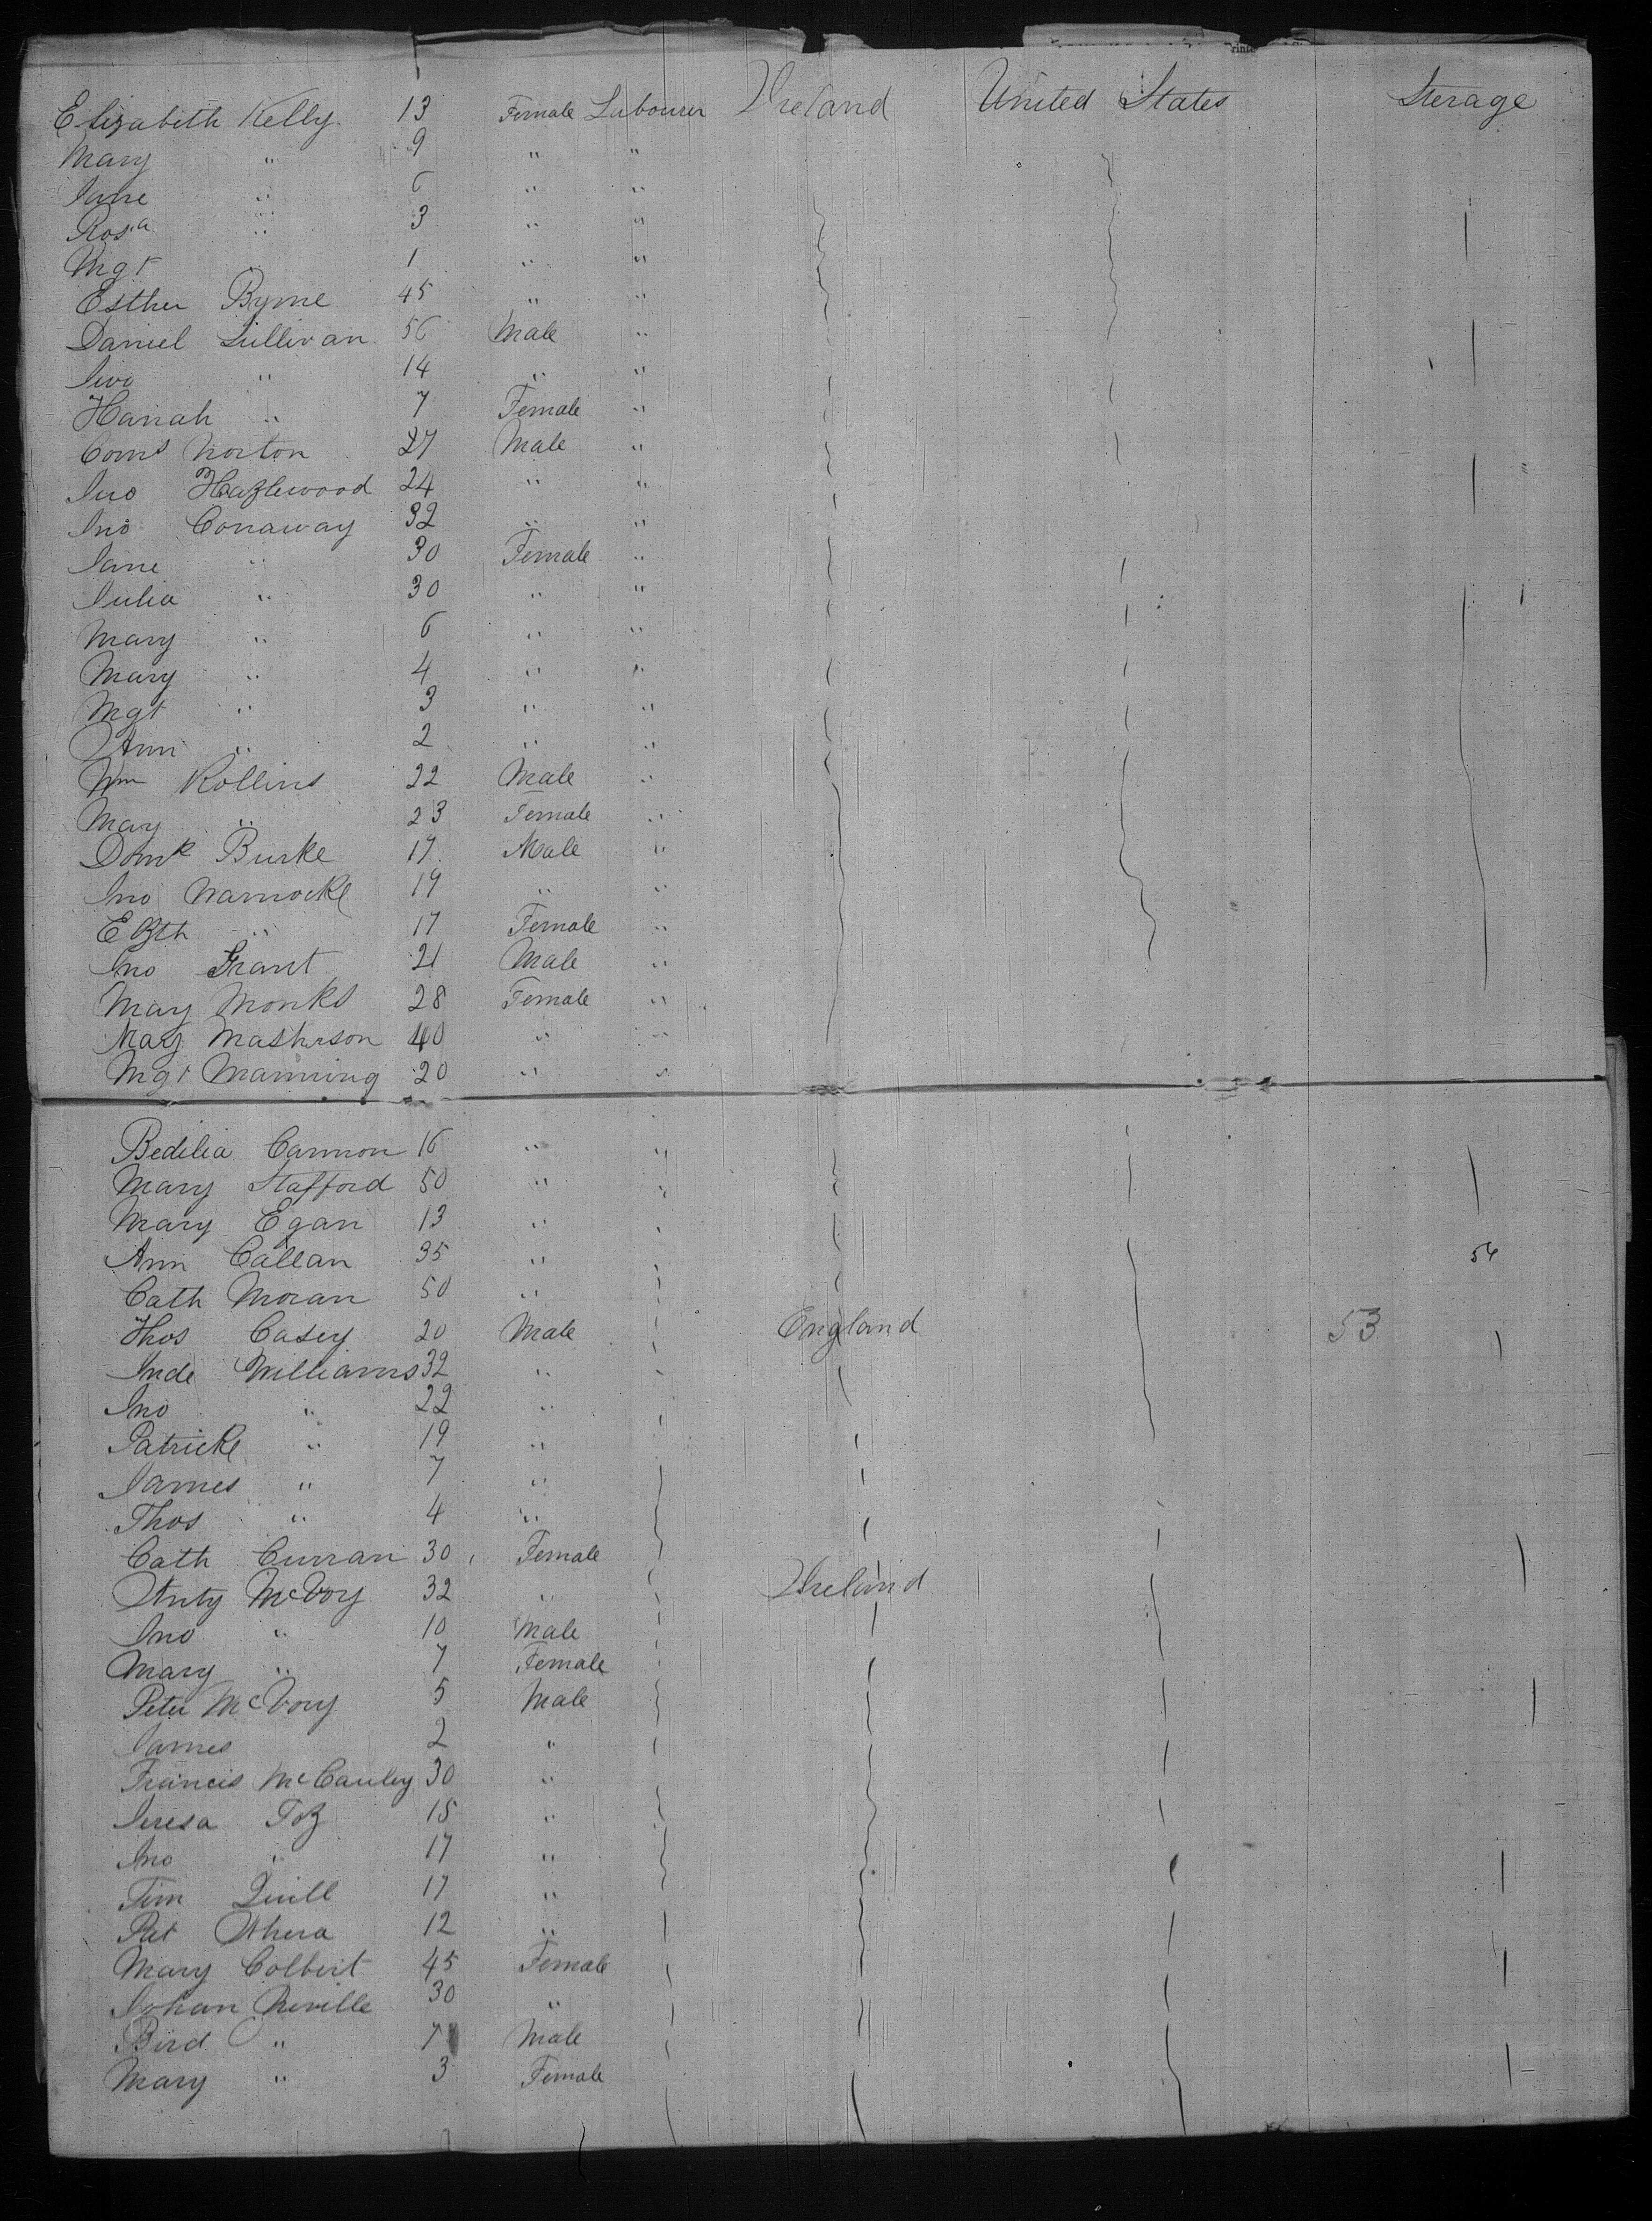 Elizabeth Kelly 13 Female Labourer Ireland United States Sterage
Mary " 9 " "
Jane " 6 " "
Rosa " 3 " "
Mgt 1 " "
Esther Byrne 45 " "
Daniel Sullivan 56 Male "
Jno " 14 " "
Hanah " 7 Female "
Corns Norton 27 Male "
Jno Hazlewood 24 " "
Jno Conaway 32 " "
Jane " 30 Female "
Julia " 30 " "
Mary " 6 " "
Mary " 4 " "
Mgt " 3 " "
Ann " 2 " "
Wm Rollins 22 Male "
May " 23 Female "
Domk Burke 17 Male "
Jno Warnocke 19 " "
Elzth " 17 Female "
Jno Grant 21 Male "
May Monks 28 Female "
May Masterson 40 " "
Mgt Manning 20 " "
Bedelia Cannon 16 " "
Mary Stafford 50 " "
Mary Egan 13 "
Ann Callan 35 " 54
Cath Moran 50 "
Thos Casey 20 Male England 53
Williams 32 "
Jno " 22 "
Patricke " 19 "
James " 7 "
Thos " 4 "
Cath Curran 30 Female
McVoy 32 " Ireland
Jno " 10 Male
Mary " 7 Female
Peter McVoy 5 Male
James 2 "
Francis McCauley 30 "
Teresa 15 "
Jno " 17 "
Tim Quill 17 "
Pat 12 "
Mary Colbert 45 Female
Johan Neville 30 "
Bird " 7 Male
Mary " 3 Female